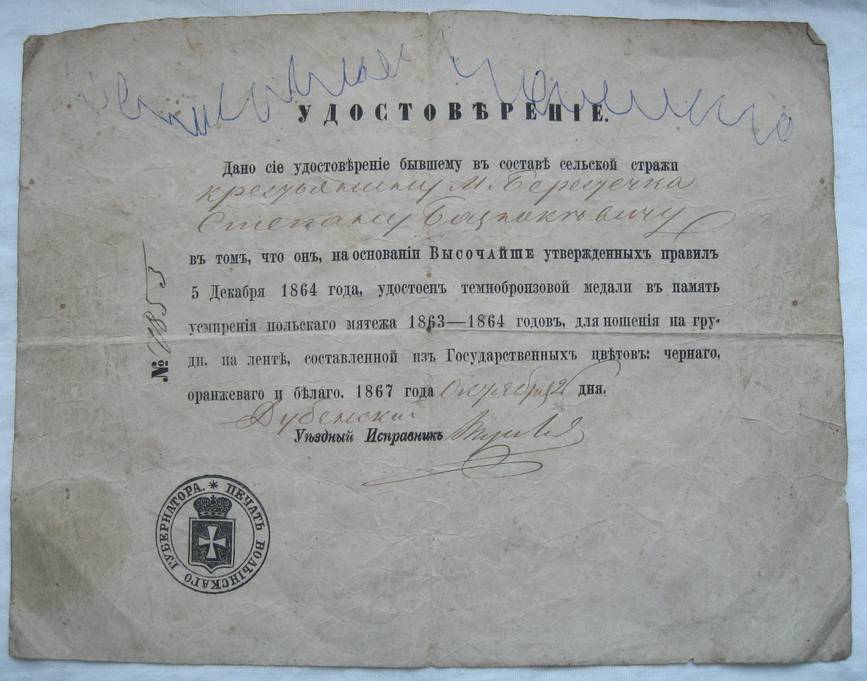 УДОСТОВѢРЕНІЕ.
Дано сіе удостовѣреніе бывшему въ составѣ сельской стражи
крестьянину м. Берестечка
Степану
въ томъ, что онъ, на основаніи Высочайше утвержденныхъ правилъ
5 Декабря 1864 года, удостоенъ темнобронзовой медали въ память
усмиренія польскаго мятежа 1863—1864 годовъ, для ношенія на гру-
ди, на лентѣ, составленной изъ Государственныхъ цвѣтовъ: чернаго,
оранжеваго и бѣлаго. 1867 года Октября 2 дня.
Дубенскій
Уѣздный Исправникъ
№
ПЕЧАТЬ ВОЛЫНСКАГО ГУБЕРНАТОРА. *